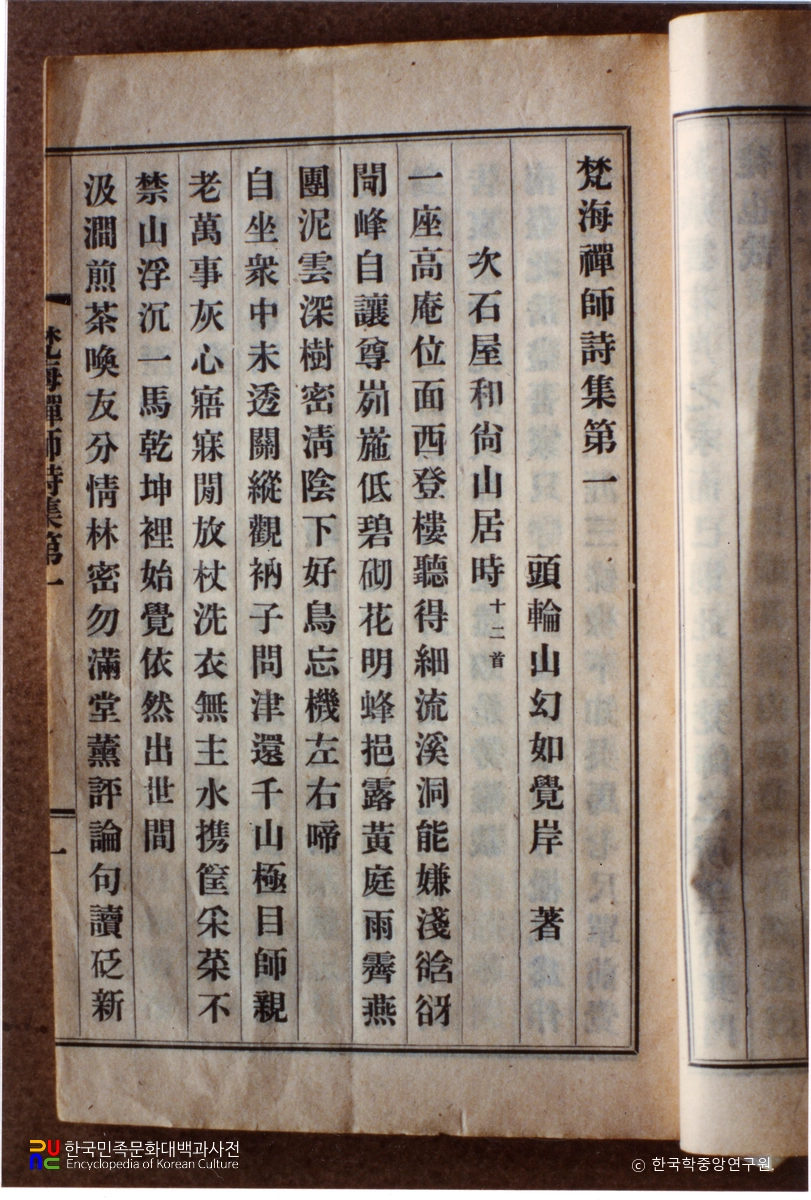 梵海禪師詩集第一
頭輪山幻如覺岸 著
次石屋和尙山居時十二首
一座高庵位面西登樓聽得細流溪洞能嫌淺谽谺
閜峰自讓尊峛崺低碧砌花明蜂挹露黃庭雨霽燕
團泥雲深樹密淸陰下好鳥忘機左右啼
自坐衆中未透關縱觀衲子問津還千山極目師親
老萬事灰心寤寐閒放杖洗衣無主水携筐采菜不
禁山浮沉一馬乾坤裡始覺依然出世間
汲澗煎茶喚友分情林密勿滿堂薰評論句讀砭新
梵海禪師詩集第一
一
한국민족문화대백과사전
Encyclopedia of Korean Culture
© 한국학중앙연구원